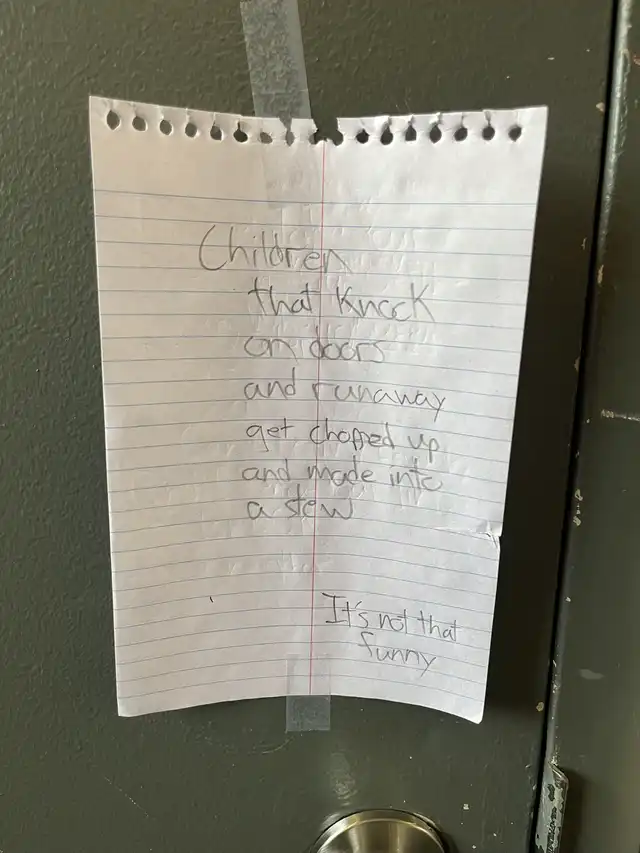 Children
that knock
on doors
and runaway
get chopped up
and made into
a stew
It's not that
funny